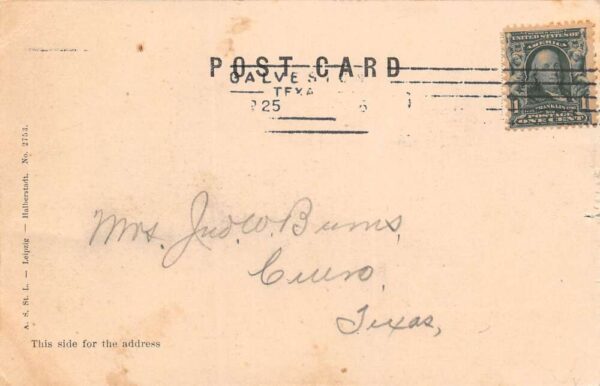 POST CARD
GALVESTON
TEXA
25 6
UNITED STATES OF
AMERICA
FRANKLIN
POSTAGE
ONE CENT
Mrs. Jno. W. Burns,
Cuero,
Texas,
A. S. St. L. — Leipzig — Halberstadt. No. 2753.
This side for the address